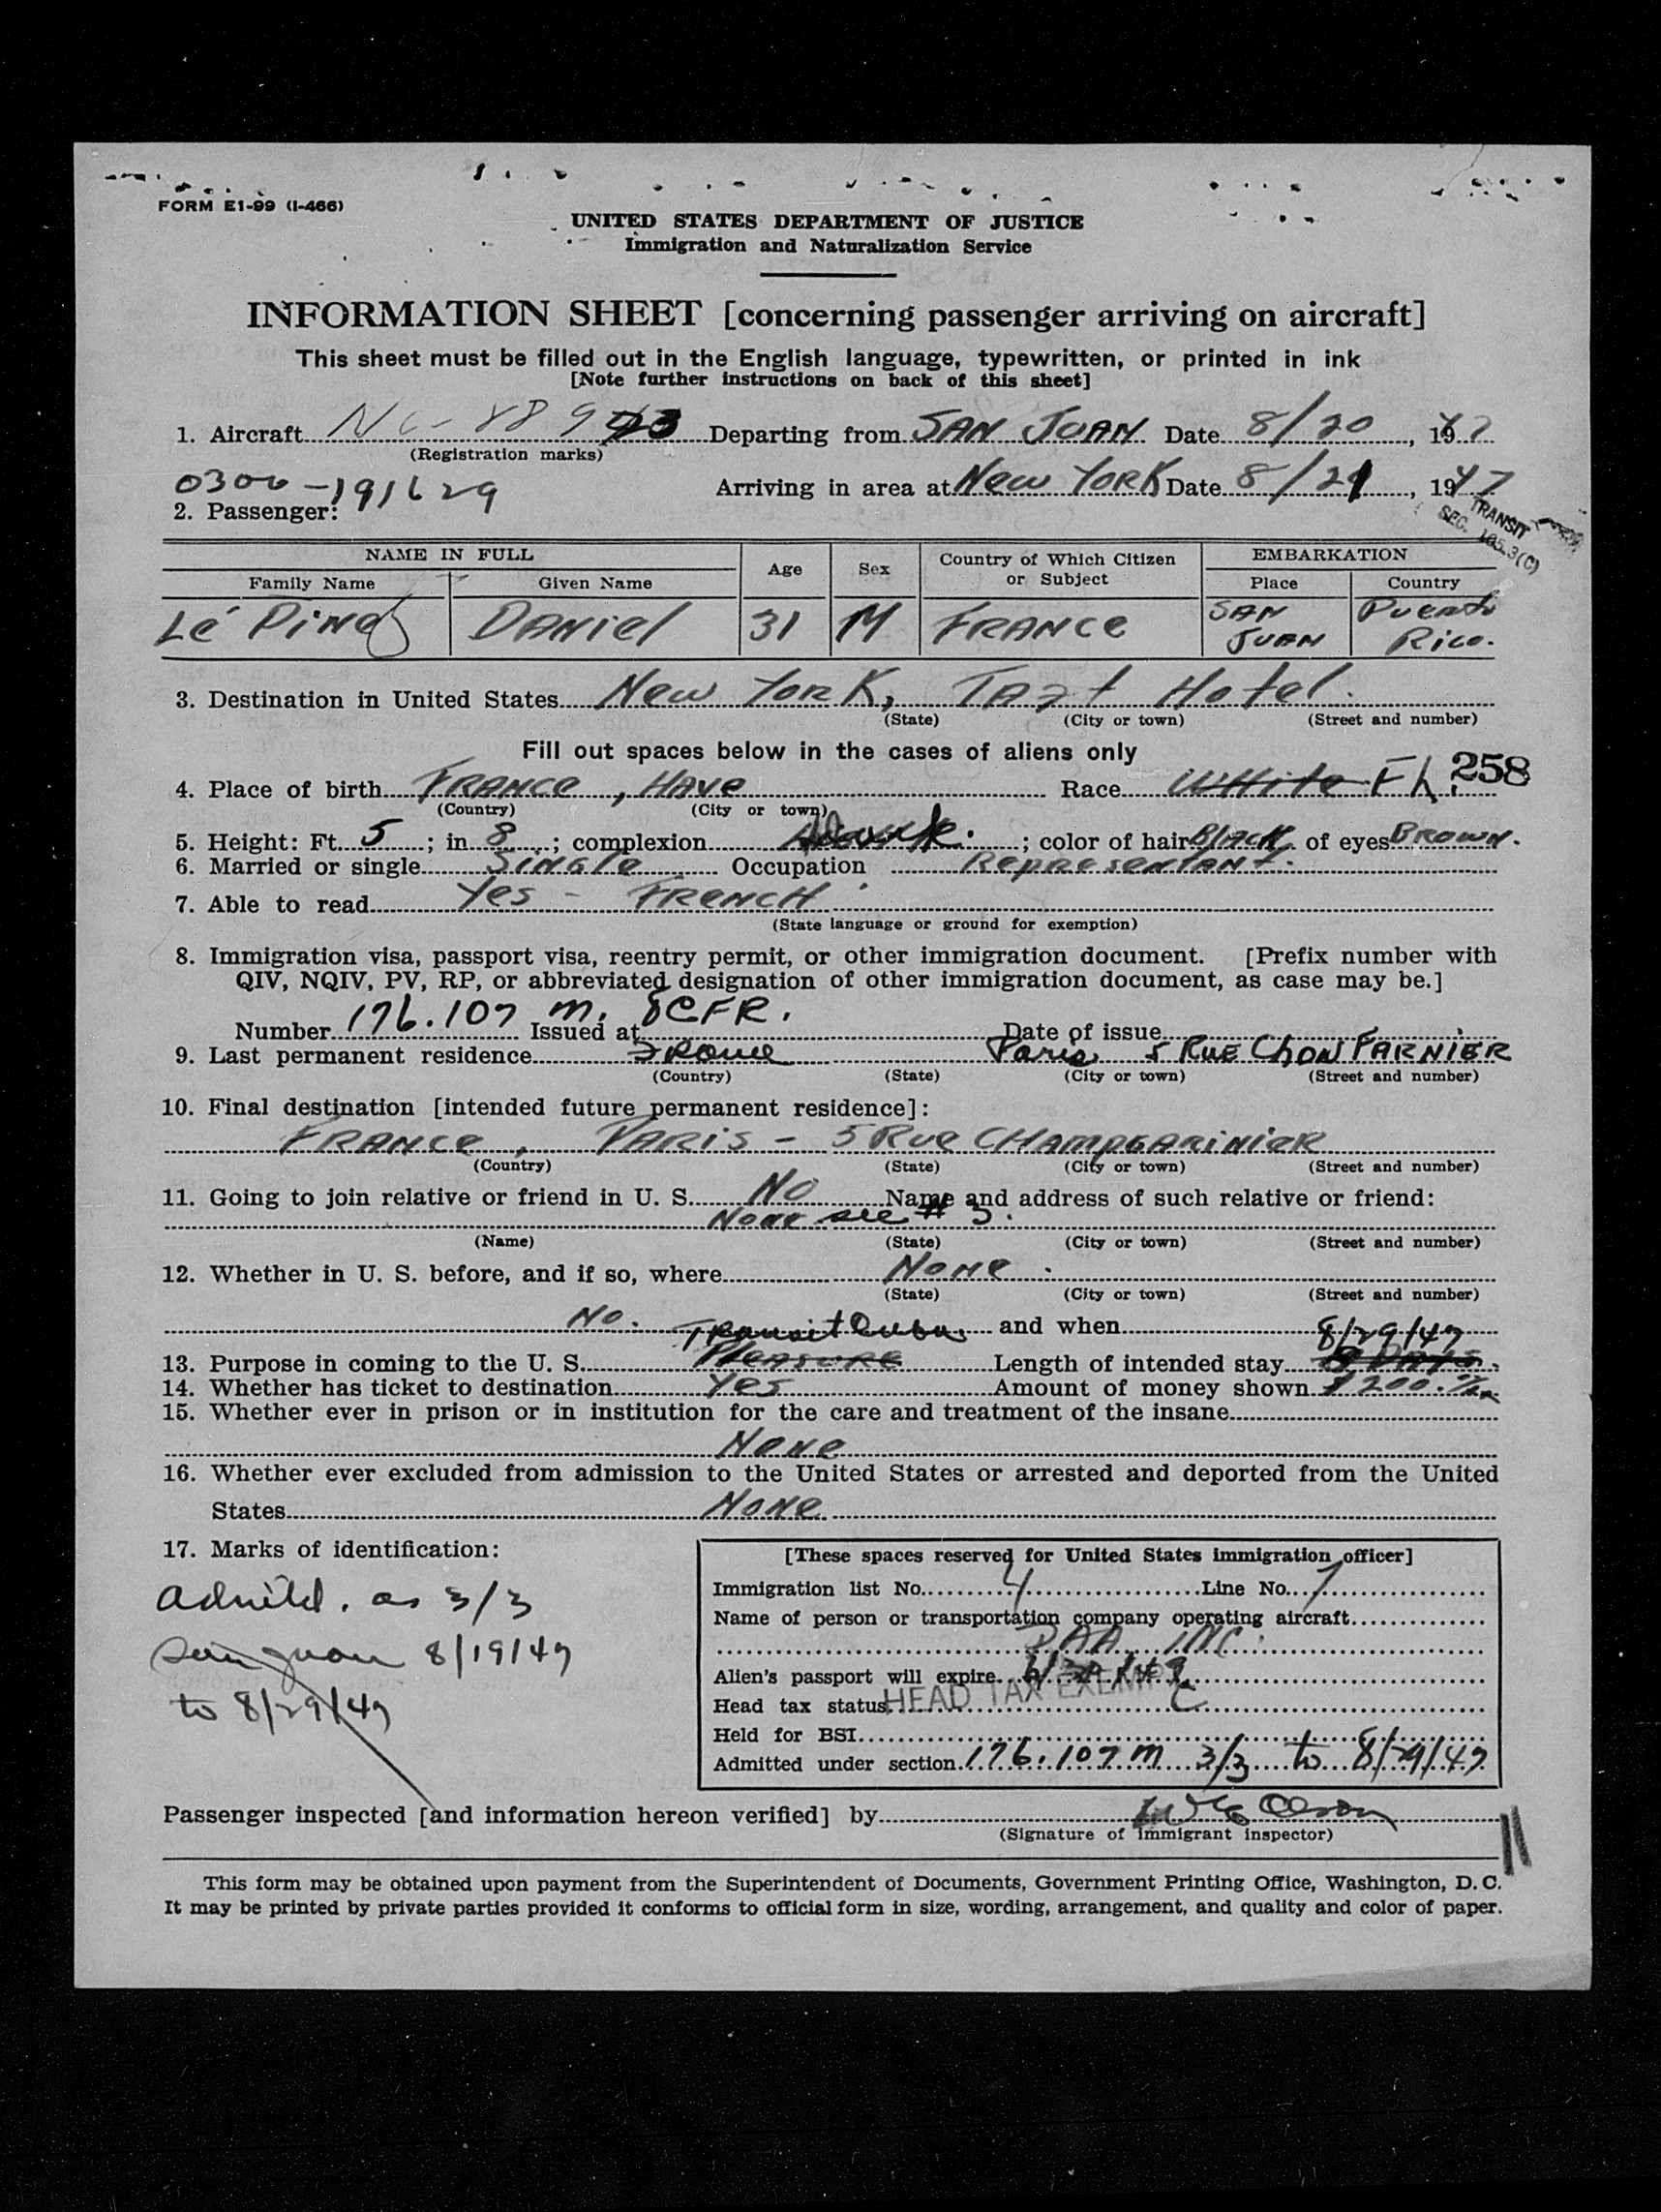 FORM E1-99 (I-466)
UNITED STATES DEPARTMENT OF JUSTICE
Immigration and Naturalization Service
INFORMATION SHEET [concerning passenger arriving on aircraft]
This sheet must be filled out in the English language, typewritten, or printed in ink
[Note further instructions on back of this sheet]
1. Aircraft NC- 889 Departing from SAN JUAN Date 8/20, 1947
(Registration marks)
0300-191629 Arriving in area at New York Date 8/21, 1947
2. Passenger:
TRANSIT
SEC. 105.3(C)
NAME IN FULL Age Sex Country of Which Citizen or Subject EMBARKATION
Family Name Given Name Place Country
Lé Pine DANiel 31 M FRANCE SAN JUAN Puerto Rico.
3. Destination in United States New York, Taft Hotel.
(State) (City or town) (Street and number)
Fill out spaces below in the cases of aliens only
258
4. Place of birth FRANCE, HAVe Race White Fh.
(Country) (City or town)
5. Height: Ft. 5; in 8; complexion Dark.; color of hair Black of eyes Brown.
6. Married or single Single Occupation Representant.
7. Able to read Yes - FRENCH
(State language or ground for exemption)
8. Immigration visa, passport visa, reentry permit, or other immigration document. [Prefix number with
QIV, NQIV, PV, RP, or abbreviated designation of other immigration document, as case may be.]
Number 176.107 m. 8CFR. Issued at Date of issue
9. Last permanent residence France Paris 5 RUE CHON FARNIER
(Country) (State) (City or town) (Street and number)
10. Final destination [intended future permanent residence]:
FRANCE, PARIS - 5 Rue
(Country) (State) (City or town) (Street and number)
11. Going to join relative or friend in U. S. No Name and address of such relative or friend:
None see # 3.
(Name) (State) (City or town) (Street and number)
12. Whether in U. S. before, and if so, where None.
(State) (City or town) (Street and number)
No. and when
Transit Cuba 8/29/47
13. Purpose in coming to the U. S. Pleasure Length of intended stay
14. Whether has ticket to destination Yes Amount of money shown $200.
15. Whether ever in prison or in institution for the care and treatment of the insane
None
16. Whether ever excluded from admission to the United States or arrested and deported from the United
States None
17. Marks of identification:
Admitted. as 3/3
San Juan 8/19/47
to 8/29/47
[These spaces reserved for United States immigration officer]
Immigration list No. 4 Line No. 7
Name of person or transportation company operating aircraft
PAA INC.
Alien's passport will expire
Head tax status HEAD TAX EXEMPT
Held for BSI
Admitted under section 176.107 m 3/3 to 8/29/47
Passenger inspected [and information hereon verified] by Olson
(Signature of immigrant inspector)
11
This form may be obtained upon payment from the Superintendent of Documents, Government Printing Office, Washington, D. C.
It may be printed by private parties provided it conforms to official form in size, wording, arrangement, and quality and color of paper.